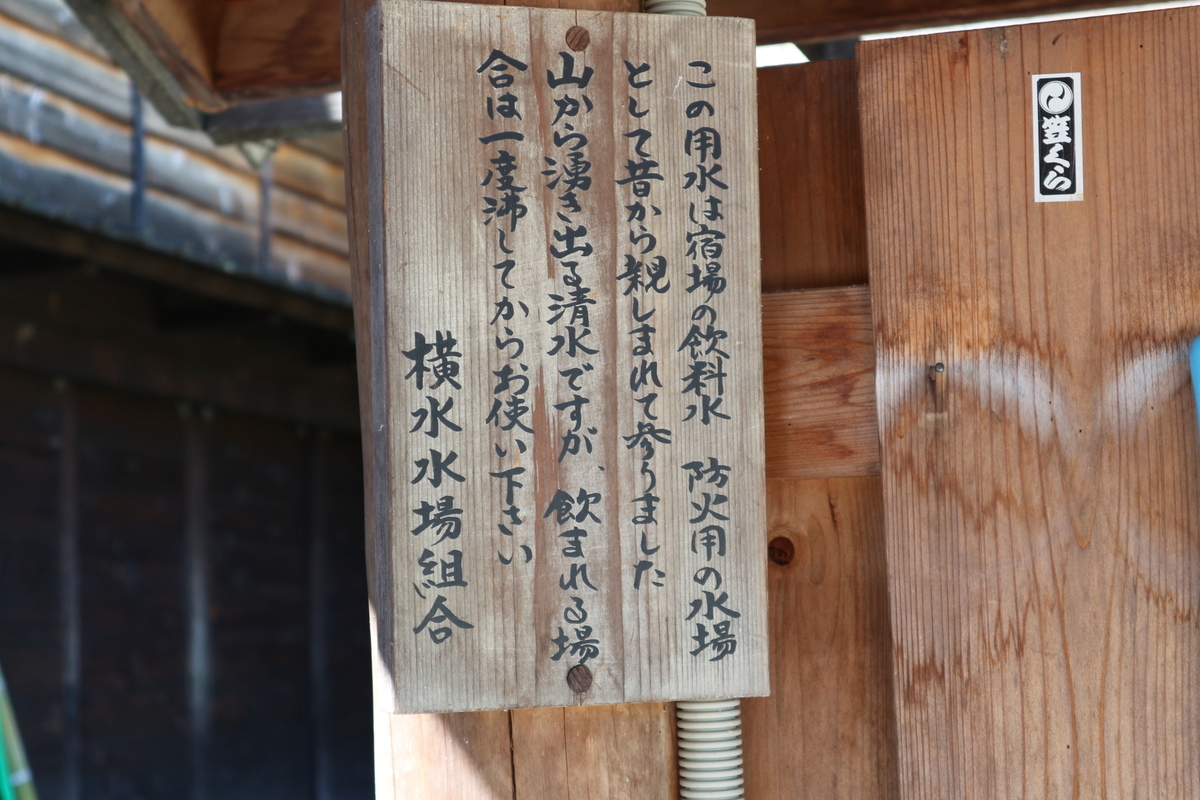 この用水は宿場の飲料水　防火用の水場
として昔から親しまれて参りました
山から湧き出る清水ですが、飲まれる場
合は一度沸してからお使い下さい
横水水場組合
笠くら